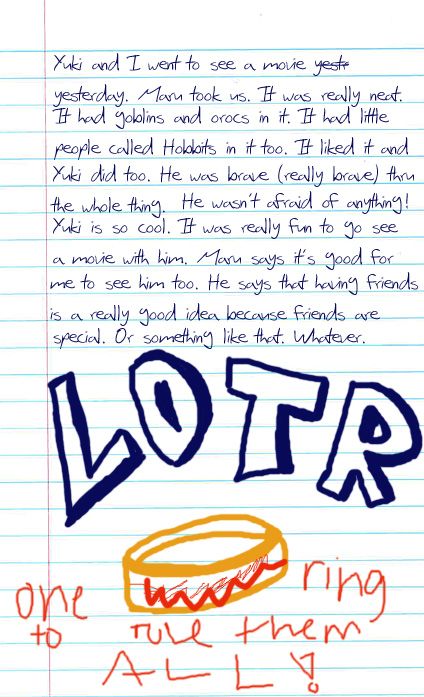 Yuki and I went to see a movie yest
yesterday. Maru took us. It was really neat.
It had goblins and orocs in it. It had little
people called Hobbits in it too. It liked it and
Yuki did too. He was brave (really brave) thru
the whole thing. He wasn't afraid of anything!
Yuki is so cool. It was really fun to go see
a movie with him. Maru says it's good for
me to see him too. He says that having friends
is a really good idea because friends are
special. Or something like that. Whatever.
LOTR
one ring
to rule them
ALL!